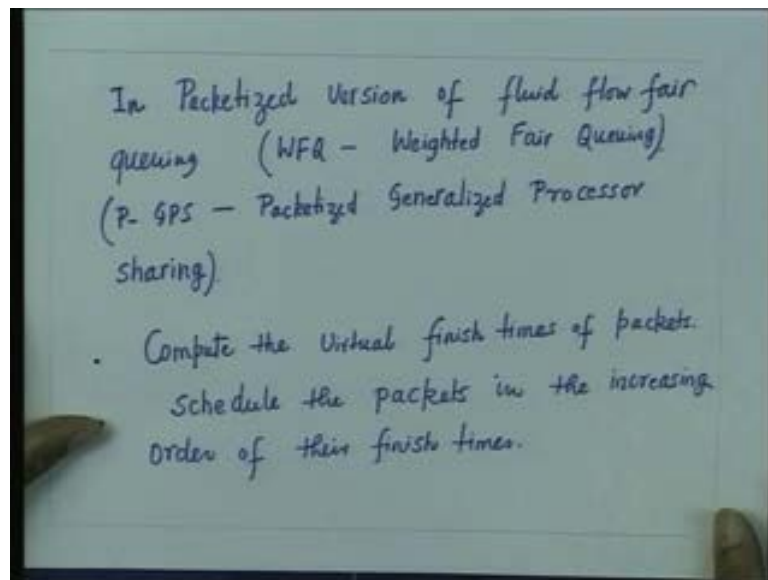 In Packetized Version of fluid flow fair
queuing (WFQ - Weighted Fair Queuing)
(P- GPS - Packetized Generalized Processor
sharing)
. Compute the virtual finish times of packets.
Schedule the packets in the increasing
order of their finish times.